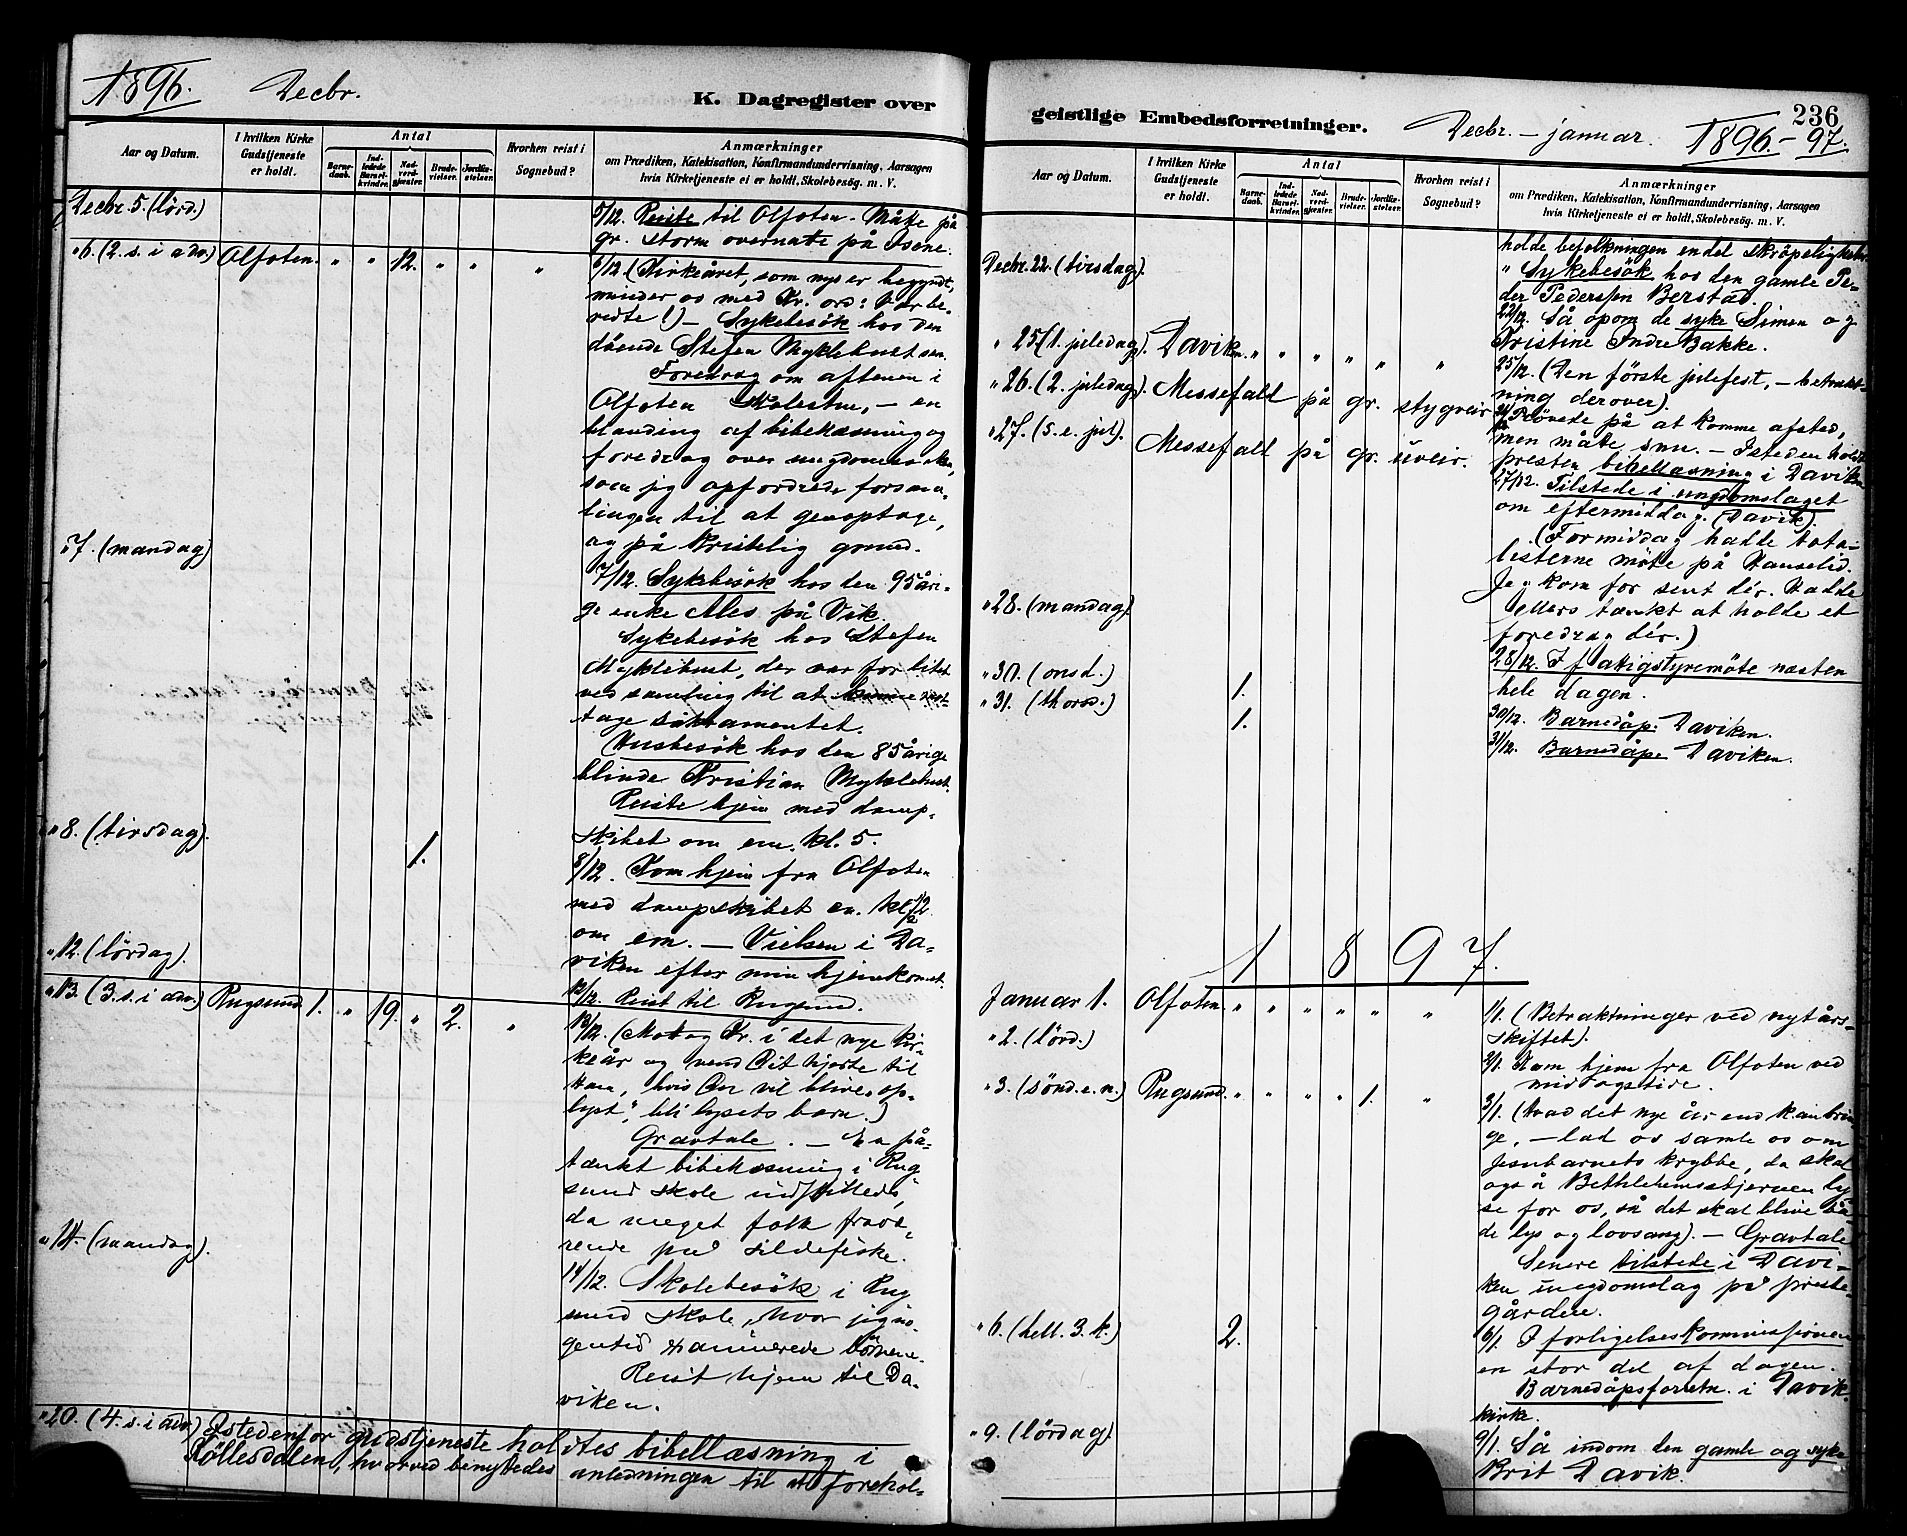 1896. Decbr.
K. Dagregister over
Aar og Datum.
I hvilken Kirke Gudstjeneste er holdt.
Antal
Barnedaab.
Indledede Barselkvinder.
Nadverdgjester.
Brudevielser.
Jordfæstelser.
Hvorhen reist i Sognebud?
Anmærkninger
om Prædiken, Katekisation, Konfirmandundervisning, Aarsagen
hvis Kirketjeneste ei er holdt, Skolebesøg. m. V.
Decbr. 5. (lørd.)
5/12. Reiste til Olfoten. Måte på
gr. storm overnatte på Isene.
" 6. (2. s. i adv.) Olfoten. " " 12. " " "
6/12. (Kirkeåret, som nys er begyndt,
minder os med Kr. ord: Vær be-
redte!) – Sykebesök hos den
döende Stefen Myklebust sen.
Foredrag om aftenen i
Olfoten skolestue, – en
blanding af bibellæsning og
foredrag over ungdomssaken,
som jeg opfordrede forsam-
lingen til at genoptage,
og på kristelig grund.
" 7. (mandag)
7/12. Sykebesök hos den 95 åri-
ge enke Ales på Vik.
Sykebesök hos Stefen
Myklebust, der var for lidet
ved samling til at mot-
tage sakramentet.
Husbesök hos den 85 årige
blinde Kristian Myklebust.
Reiste hjem med damp-
skibet om em. kl. 5.
" 8. (tirsdag). 1.
8/12. Kom hjem fra Olfoten
med dampskibet kl. 1/2 2
om em. – Vielsen i Da-
viken efter min hjemkomst.
" 12. (lördag).
12/12. Reist til Rugsund.
" 13. (3. s. i adv.) Rugsund. 1. " 19. " 2. "
13/12. (Motag Kr. i det nye kir-
keår og vend Dit hjerte til
Ham, hvis Du vil blive "op-
lyst", bli lysets barn.)
Gravtale. – En på-
tænkt bibellæsning i Rug
sund skole indstilledes,
da meget folk fravæ-
rende på sildefiske.
" 14. (mandag).
14/12. Skolebesök i Rug
sund skole, hvor jeg no-
gentid examinerede börnene.
Reist hjem til Da-
viken.
" 20. (4. s. i adv.) Istedenfor gudstjeneste holdtes bibellæsning i
Röllesdalen, hvorved benyttedes anledningen til at forehol-
236
geistlige Embedsforretninger.
Decbr. – januar. 1896. – 97.
Aar og Datum.
I hvilken Kirke Gudstjeneste er holdt.
Antal
Barnedaab.
Indledede Barselkvinder.
Nadverdgjester.
Brudevielser.
Jordfæstelser.
Hvorhen reist i Sognebud?
Anmærkninger
om Prædiken, Katekisation, Konfirmandundervisning, Aarsagen
hvis Kirketjeneste ei er holdt, Skolebesög. m. V.
holde befolkningen endel skröpeligheter.
" Sykebesök hos den gamle Pe-
der Pederssen Berstad.
Decbr. 22. (tirsdag).
22/12. Så opom de syke Simen og
Kristine Indre Bakke.
" 25. (1. juledag). Daviken. " " " " " "
25/12. (Den förste julefest, – betrakt-
ning derover).
" 26. (2. juledag). Messefald på gr. stygveir
Prövede på at komme afsted,
men måtte snu. – Isteden holdt
presten bibellæsning i Daviken
" 27. (s. e. jul). Messefald på gr. uveir.
27/12. Tilstede i ungdomslaget
om eftermiddag. (Davik).
(Formiddag hadde tota-
listerne möte på Hanselid.
Jeg kom for sent dér. Hadde
ellers tænkt at holde et
foredrag dér.)
" 28. (mandag).
28/12. I fattigstyremöte næsten
hele dagen.
" 30. (onsd.) 1.
30/12. Barnedåp. Daviken.
" 31. (thorsd.) 1.
31/12. Barnedåp. Daviken.
1 8 9 7.
Januar 1. Olfoten. " " " " " "
1/1. (Betraktninger ved nytårs-
skiftet).
" 2. (lörd.)
2/1. Kom hjem fra Olfoten ved
middagstide.
" 3. (sönd. e. n.) Rugsund. " " " " 1. "
3/1. (Hvad det nye år end kan brin-
ge, – lad os samle os om
Jesubarnets krybbe, da skal
også Bethlehemsstjernen ly-
se for os, så det skal blive bå-
de lys og lovsang). – Gravtale
Senere tilstede i Davi-
ken ungdomslag på preste-
gården.
" 6. (hell. 3. k.) 2.
6/1. I forligelseskommissionen
en stor del af dagen.
Barnedåpsforretn. i Davik
kirke.
" 9. (lördag)
9/1. Så indom den gamle og syke
Brit Davik.